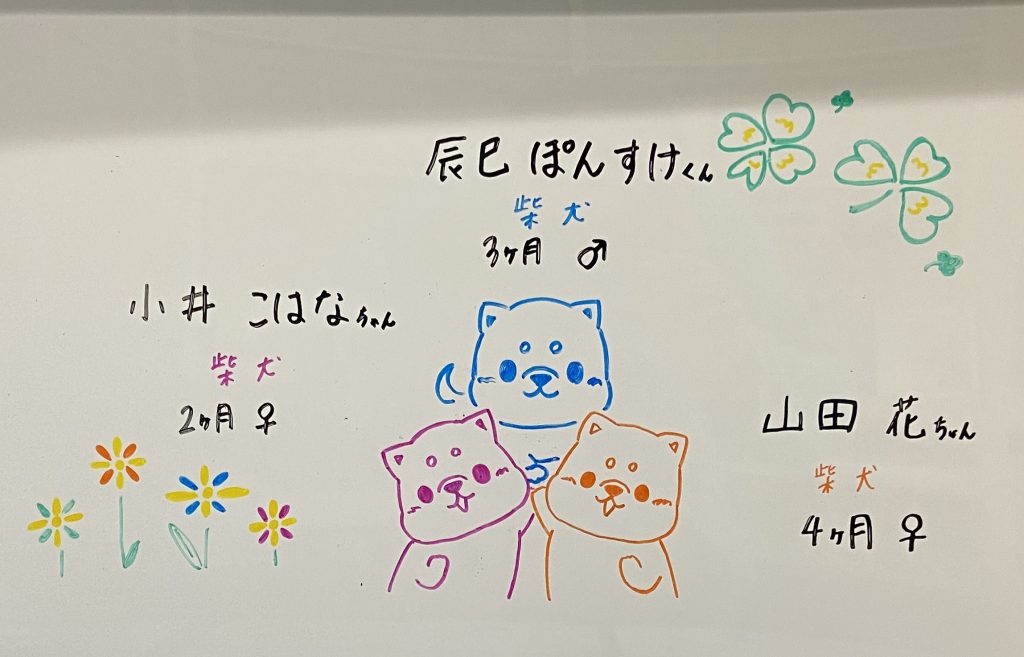 辰巳 ぽんすけくん
柴犬
3ヶ月 ♂
小井 こはなちゃん
柴犬
2ヶ月 ♀
山田 花ちゃん
柴犬
4ヶ月 ♀